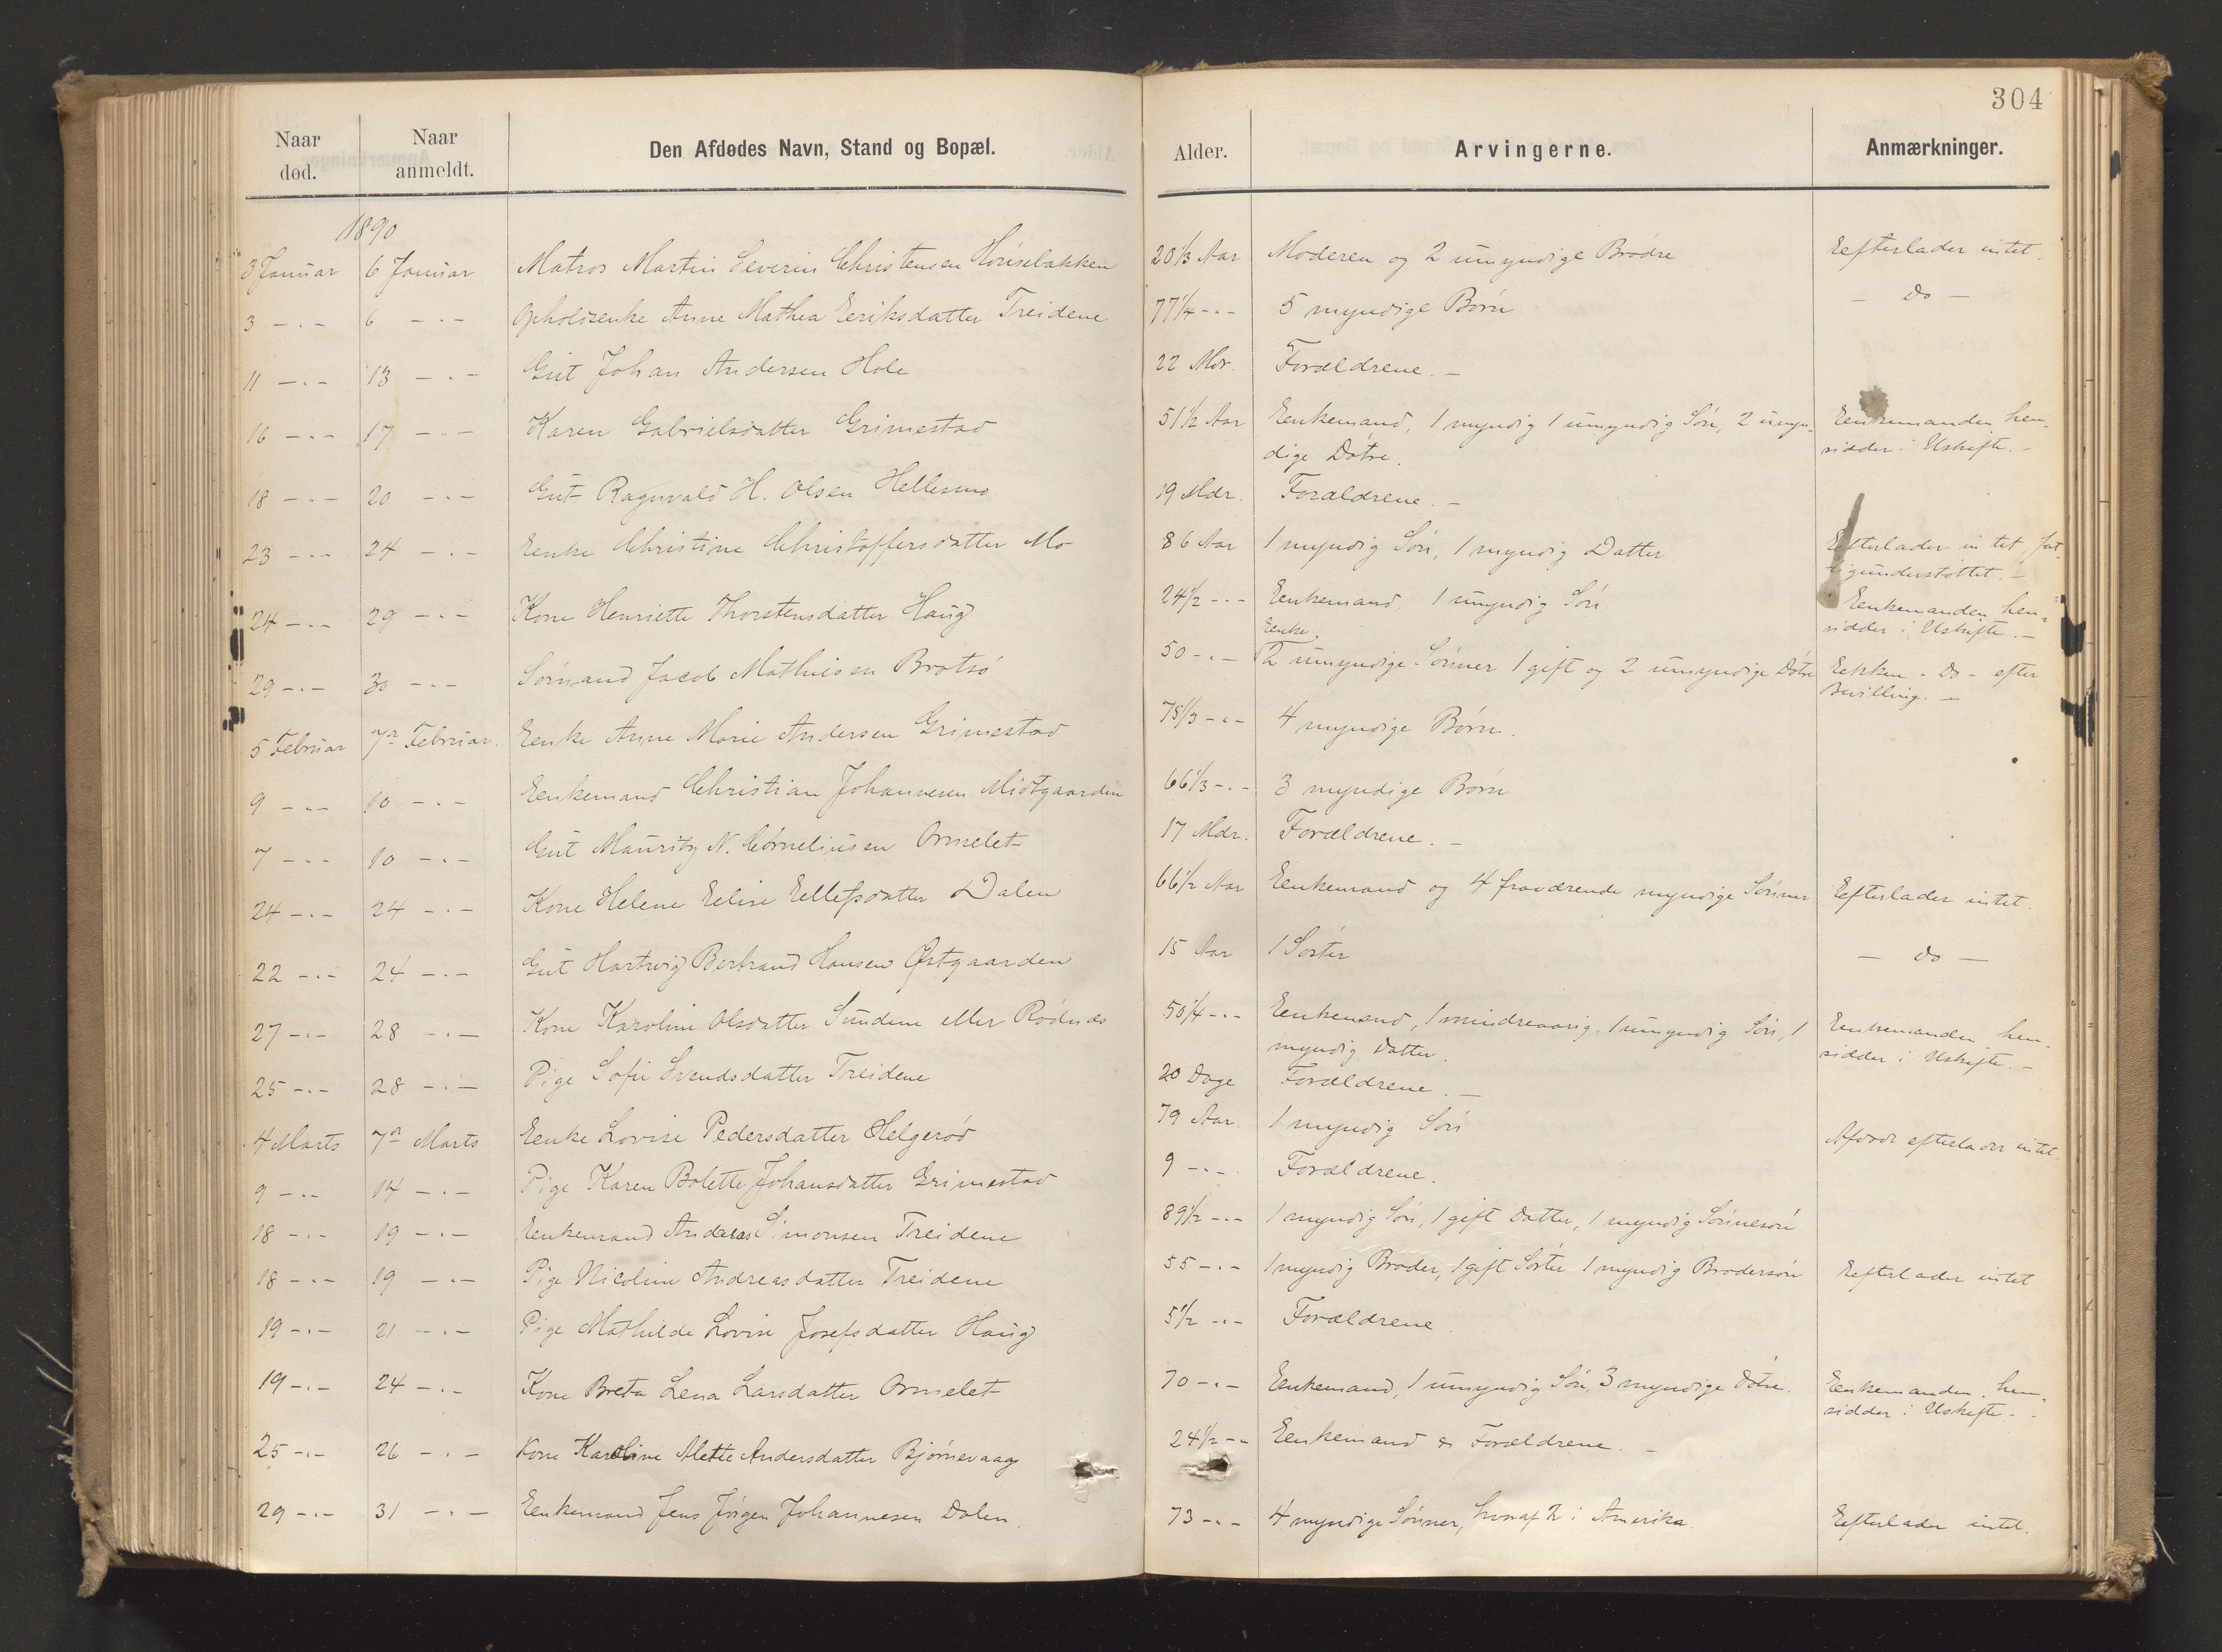 304
Naar død. Naar anmeldt. Den Afdødes Navn, Stand og Bopæl. Alder. Arvingerne. Anmærkninger.
1890
3 Januar 6 Januar Matros Martin Severin Christensen Hönselakken 20 1/3 Aar Moderen og 2 umyndige Brødre Eefterlader intet.
3 -"- 6 -"- Opholdsenke Anne Mathea Eeriksdatter Treidene 77 1/4 -"- 5 myndige Børn - do -
11 -"- 13 -"- Gut Johan Andersen Hole 22 Mdr. Forældrene. -
16 -"- 17 -"- Karen Gabrielsdatter Grimestad 51 1/2 Aar Eenkemand, 1 myndig 1 umyndig Søn, 2 umyn- Eenkemanden hen-
dige Døtre. sidder i Uskifte. -
18 -"- 20 -"- Gut Ragnvald H. Olsen Hellesmo 19 Mdr. Forældrene. -
23 -"- 24 -"- Eenke Christine Christoffersdatter Mo 86 Aar 1 myndig Søn, 1 myndig Datter Eefterlader intet, fat-
tigunderstøttet. -
24 -"- 29 -"- Kone Henriette Thorstensdatter Haug 24 1/2 -"- Eenkemand, 1 umyndig Søn Eenkemanden hen-
sidder i Uskifte. -
Eenke,
29 -"- 30 -"- Sømand Jacob Mathiesen Brøtsø 50 -"- 2 umyndige Sønner 1 gift og 2 umyndige Døtre Eekken - do - efter
Bevilling. -
5 Februar 7de Februar. Eenke Anne Marie Andersen Grimestad 75 1/3 -"- 4 myndige Børn.
9 -"- 10 -"- Eenkemand Christian Johannesen Midtgaarden 66 1/3 -"- 3 myndige Børn
7 -"- 10 -"- Gut Mauritz N. Corneliusen Ormelet 17 Mdr. Forældrene. -
24 -"- 24 -"- Kone Helene Eelise Eellefsdatter Dalen 66 1/2 Aar Eenkemand og 4 fraværende myndige Sønner Eefterlader intet.
22 -"- 24 -"- Gut Hartvig Bertrand Hansen Østgaarden 15 Aar 1 Søster - do -
27 -"- 28 -"- Kone Karoline Olsdatter Sundene eller Rødnæs 50 1/4 -"- Eenkemand, 1 mindreaarig, 1 umyndig Søn, 1 Eenkemanden hen-
myndig Datter. sidder i Uskifte. -
25 -"- 28 -"- Pige Sofie Svendsdatter Treidene 20 Dage Forældrene. -
4 Marts 7de Marts Eenke Lovise Pedersdatter Helgerød 79 Aar. 1 myndig Søn Afdøde efterlader intet.
9 -"- 14 -"- Pige Karen Bolette Johansdatter Grimestad 9 -"- Forældrene.
18 -"- 19 -"- Eenkemand Andreas Simonsen Treidene 89 1/2 -"- 1 myndig Søn, 1 gift Datter, 1 myndig Sønnesøn
18 -"- 19 -"- Pige Nicoline Andreasdatter Treidene 55 -"- 1 myndig Broder, 1 gift Søster 1 myndig Brodersøn Eefterlader intet
19 -"- 21 -"- Pige Mathilde Lovise Josefsdatter Haug 5 1/2 -"- Forældrene
19 -"- 24 -"- Kone Breta Lena Larsdatter Ormelet 70 -"- Eenkemand, 1 umyndig Søn, 3 myndige Døtre. Eenkemanden hen-
sidder i Uskifte. -
25 -"- 26 -"- Kone Karoline Mette Andersdatter Bjørnevaag 24 1/2 -"- Eenkemand & Forældrene. -
29 -"- 31 -"- Eenkemand Jens Jørgen Johannesen Dalen. 73 -"- 4 myndige Sønner, hvoraf 2 i Amerika. Eefterlader intet.